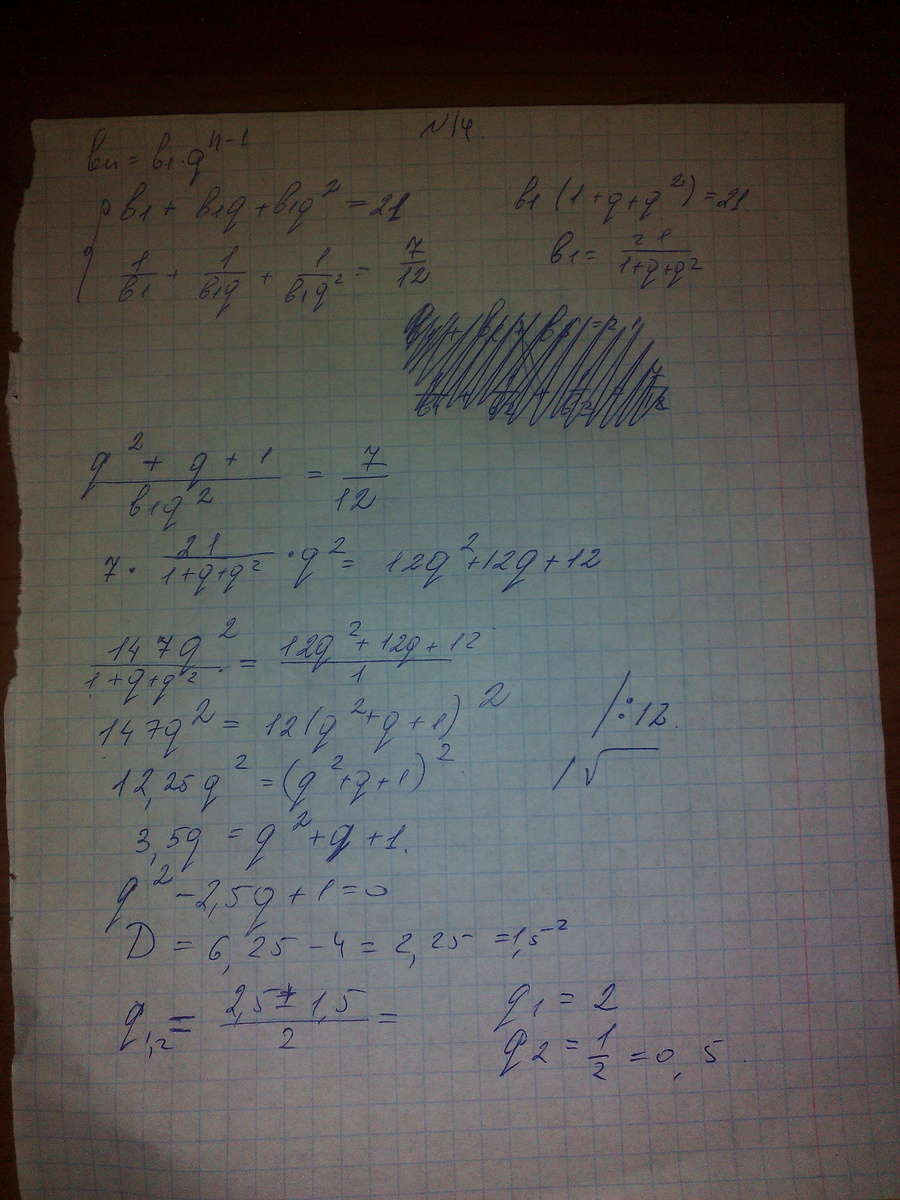 N14.
bn = b1·q^{n-1}
{ b1 + b1q + b1q² = 21
b1 (1+q+q²) = 21.
1/b1 + 1/b1q + 1/b1q² = 7/12
b1 = 21/(1+q+q²)
(q² + q + 1)/(b1q²) = 7/12
7 · 21/(1+q+q²) · q² = 12q²+12q+12
147q²/(1+q+q²) = (12q²+12q+12)/1
147q² = 12(q²+q+1)² /:12.
12,25q² = (q²+q+1)² /√
3,5q = q²+q+1.
q² -2,5q+1=0
D = 6,25-4 = 2,25 = 1,5²
q1,2 = (2,5 ± 1,5)/2 =
q1 = 2
q2 = 1/2 = 0,5.